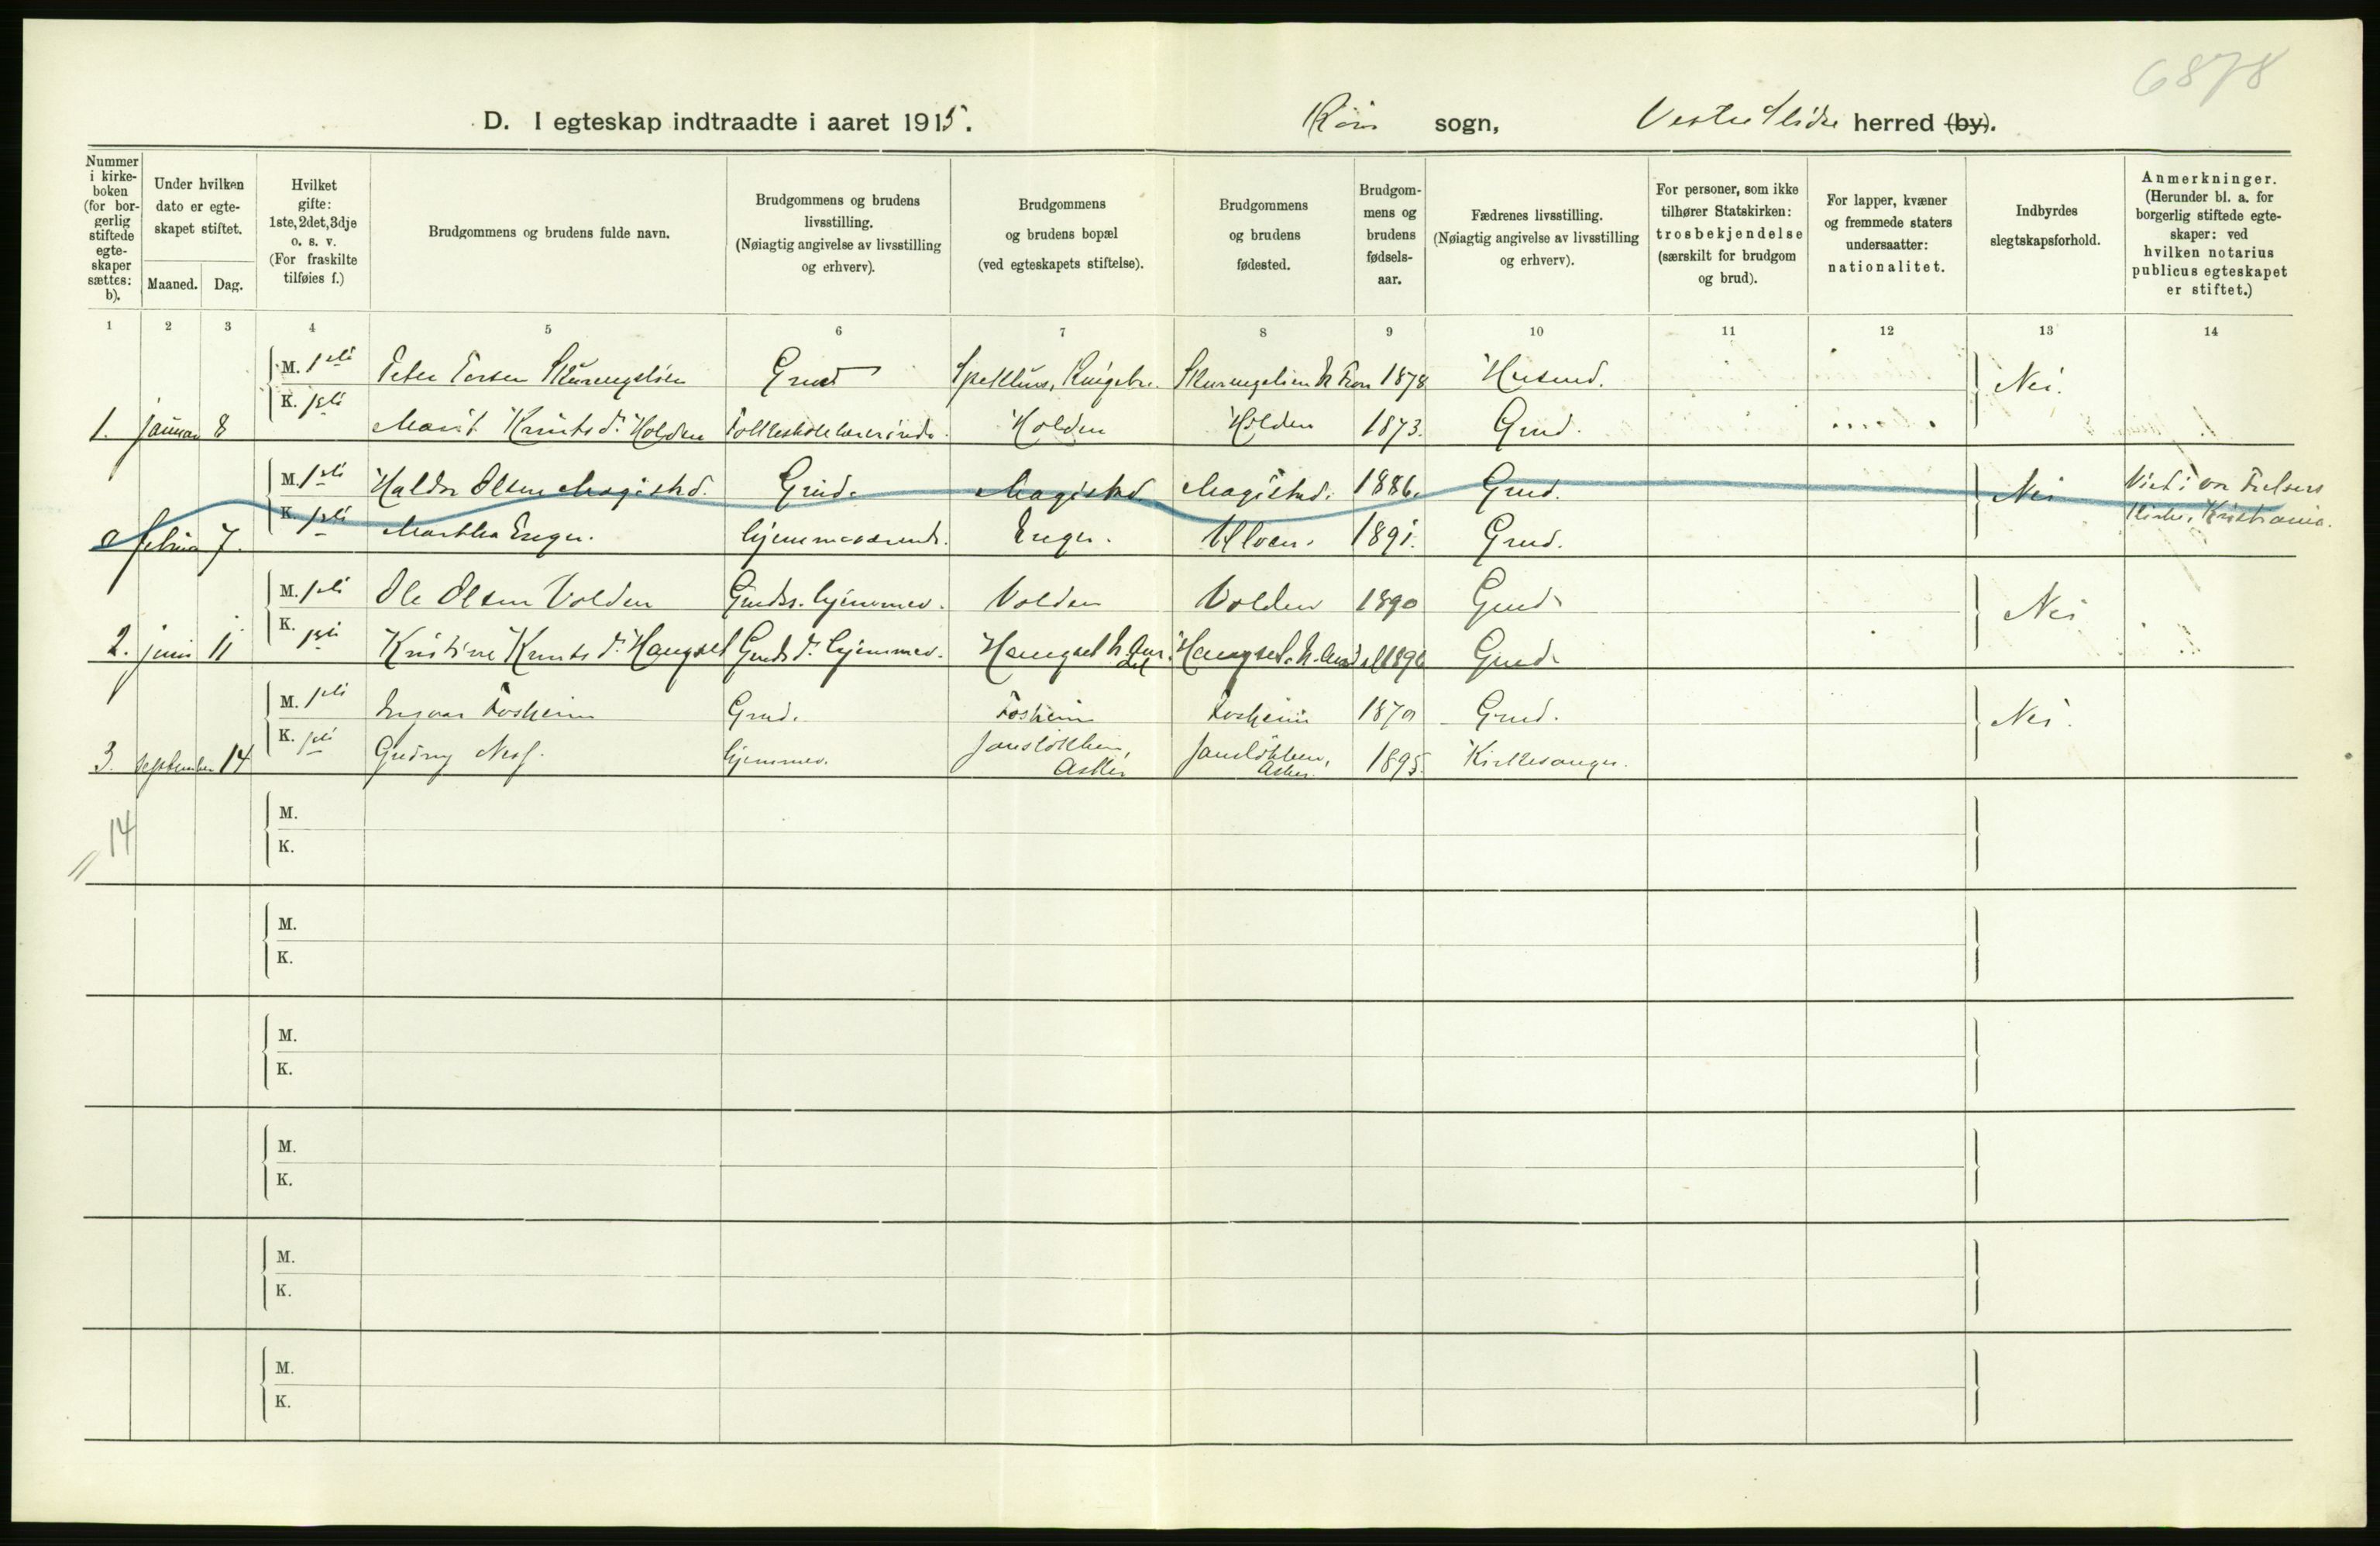 6878
D. I egteskap indtraadte i aaret 1915. Røn sogn, Vestre Slidre herred (by).
Nummer i kirkeboken (for borgerlig stiftede egteskaper sættes: b).
Under hvilken dato er egteskapet stiftet.
Maaned. Dag.
Hvilket gifte: 1ste, 2det, 3dje o. s. v. (For fraskilte tilføies f.)
Brudgommens og brudens fulde navn.
Brudgommens og brudens livsstilling. (Nøiagtig angivelse av livsstilling og erhverv).
Brudgommens og brudens bopæl (ved egteskapets stiftelse).
Brudgommens og brudens fødested.
Brudgommens og brudens fødselsaar.
Fædrenes livsstilling. (Nøiagtig angivelse av livsstilling og erhverv).
For personer, som ikke tilhører Statskirken: trosbekjendelse (særskilt for brudgom og brud).
For lapper, kvæner og fremmede staters undersaatter: nationalitet.
Indbyrdes slegtskapsforhold.
Anmerkninger. (Herunder bl. a. for borgerlig stiftede egteskaper: ved hvilken notarius publicus egteskapet er stiftet.)
1 2 3 4 5 6 7 8 9 10 11 12 13 14
M. 1ste Grd 1878 Husmd. Nei.
1. januar 8 K. 1ste Marit Knutsdr. Holden Folkeskolelærerinde. Holden Holden 1873. Grd.
M. 1ste Haldor Olsen Magistad. Grd. Magistad Magistad. 1886. Grd. Nei Viet i vor Frelsers
2 februar 7. K. 1ste Martha Enger. hjemmeværende. Enger. 1891. Grd. kirke, Kristiania.
M. 1ste Ole Olsen Volden Grds. hjemmev. Volden Volden 1890 Grd. Nei
2. juni 11 K. 1ste Kristine Knutsdr. Haugset Grdsdr. hjemmev. Haugset N. Aurdal Haugset. N. Aurdal 1890 Grd.
M. 1ste Ingvar Fosheim Grd. Fosheim Fosheim 1870 Grd. Nei.
3. september 14 K. 1ste Gudny Ness. hjemmev. Jansløkken, Asker Jansløkken, Asker. 1895. Kirkesanger.
14
M.
K.
M.
K.
M.
K.
M.
K.
M.
K.
M.
K.